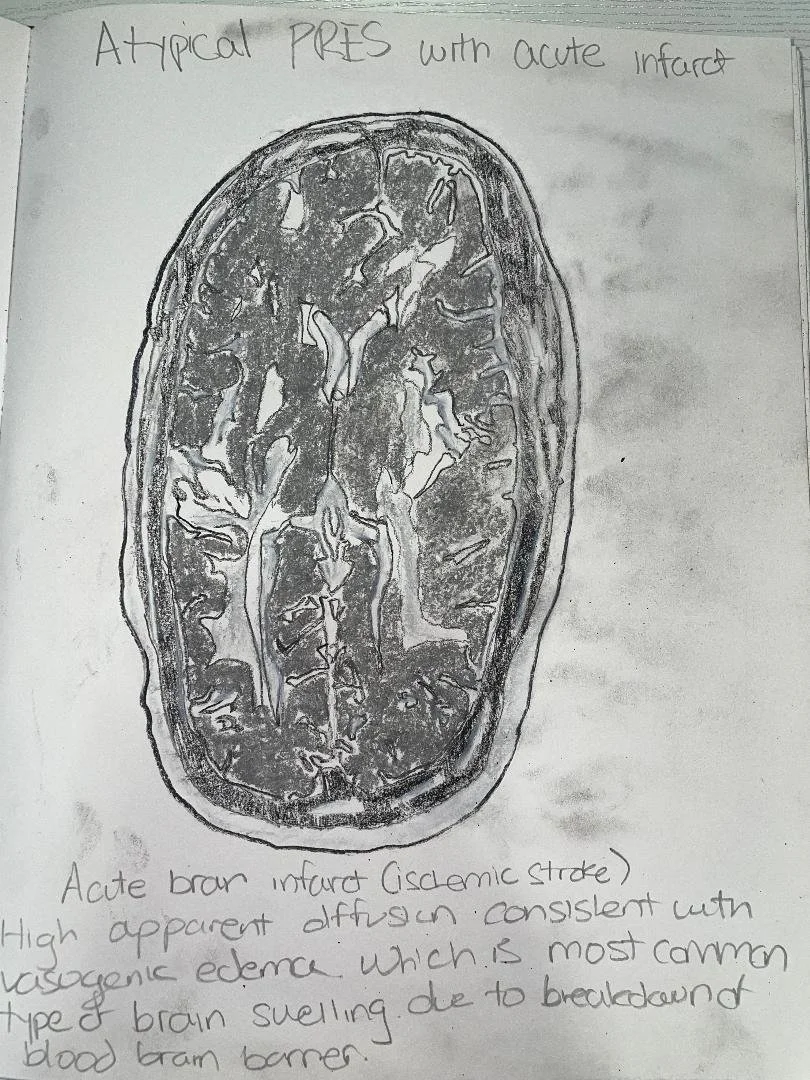 Atypical PRES with acute infarct
Acute bran infarct (ischemic stroke)
High apparent diffusion consistent with
vasogenic edema which is most common
type of brain suelling due to breakdown of
blood brain barrier.